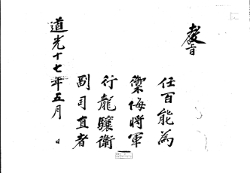 敎旨
任百能爲
禦侮將軍
行龍驤衛
副司直者
道光十七年五月 日